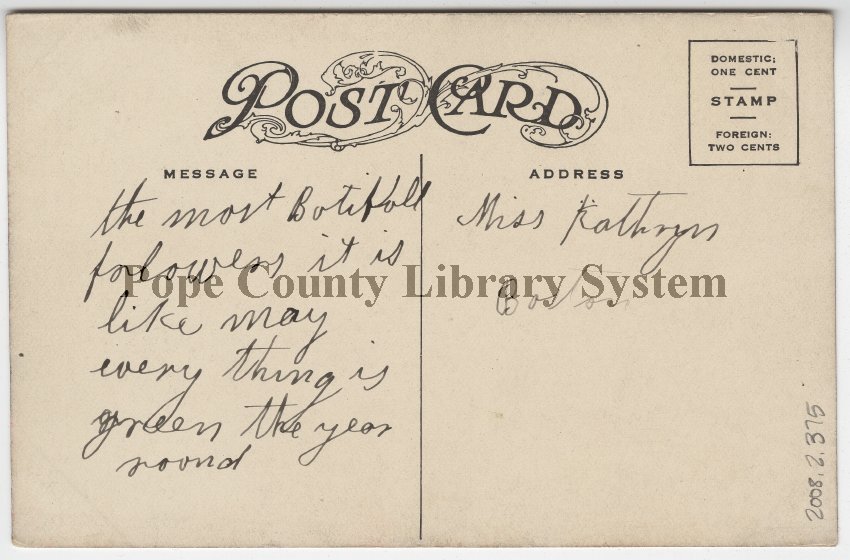 POST CARD
DOMESTIC:
ONE CENT
STAMP
FOREIGN:
TWO CENTS
MESSAGE
the most Botifoll
folowers it is
like may
every thing is
green the year
roond
ADDRESS
Miss Kathryn
Boston
Pope County Library System
2008.2.375